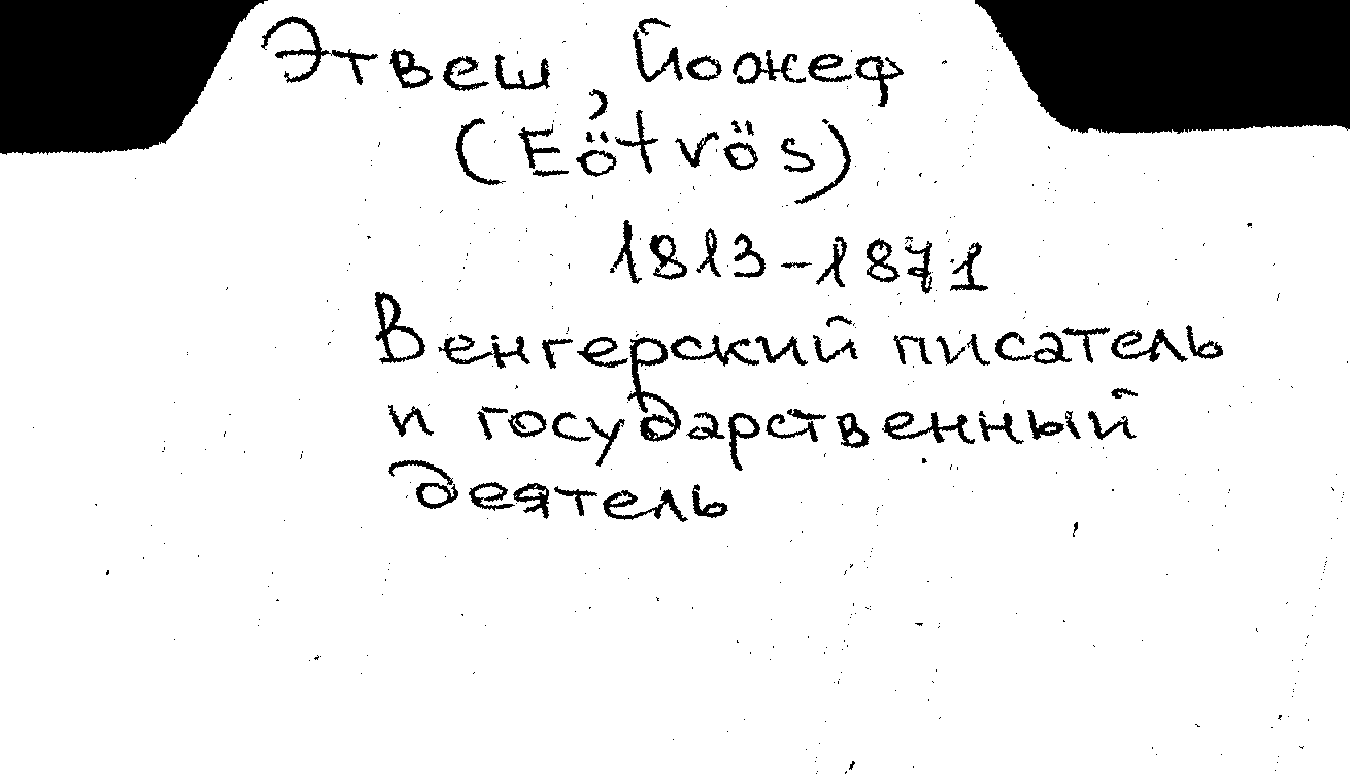 Этвеш, Йожеф
(Eötvös)
1813-1871
Венгерский писатель
и государственный
деятель